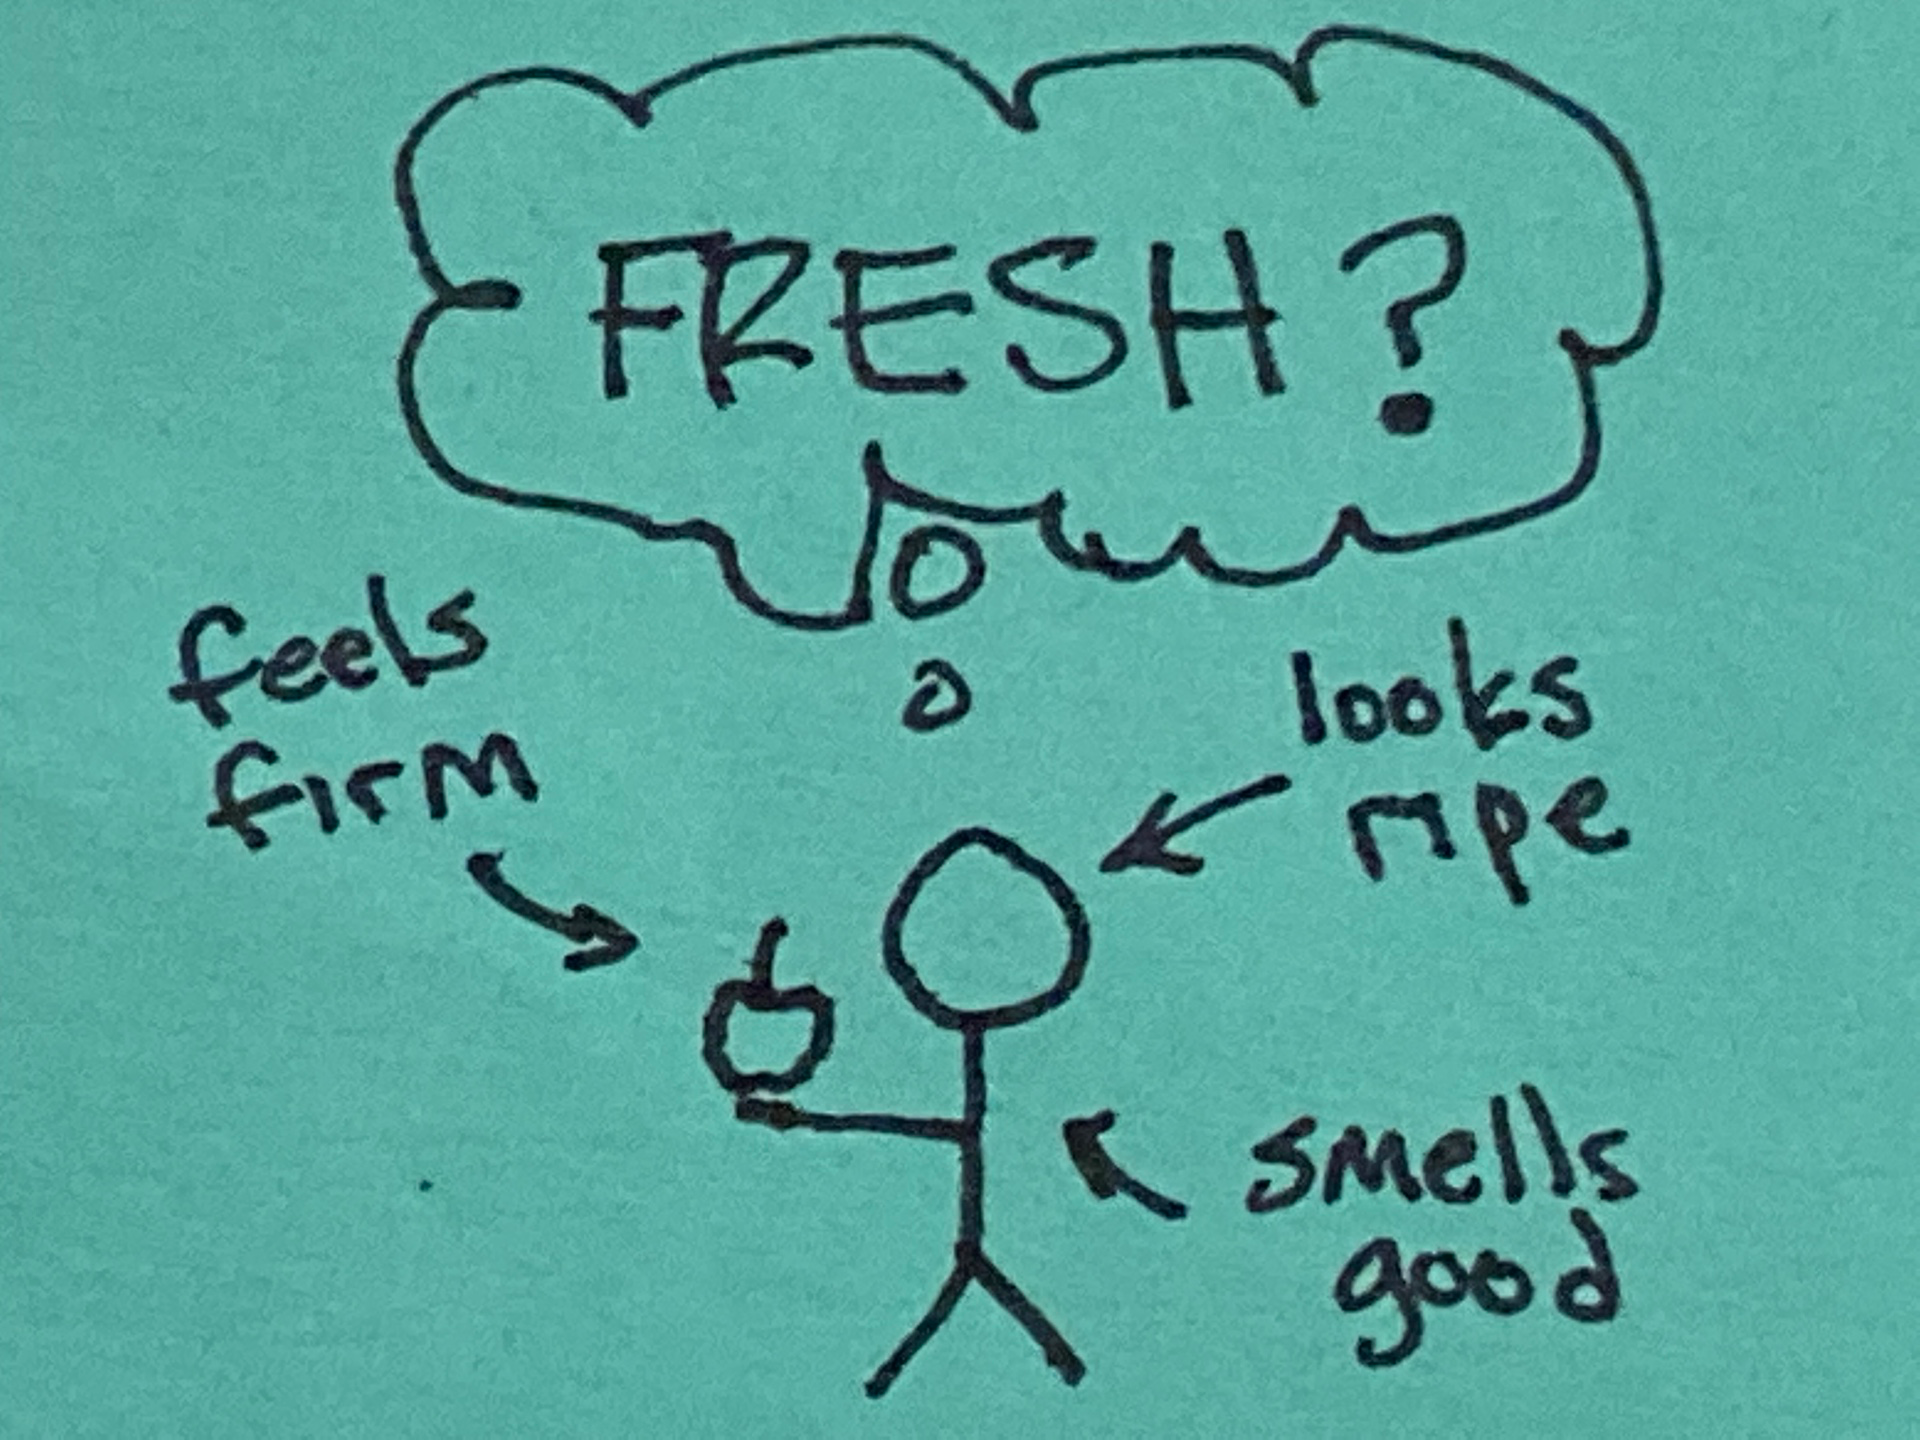 FRESH?
feels
firm
looks
ripe
smells
good